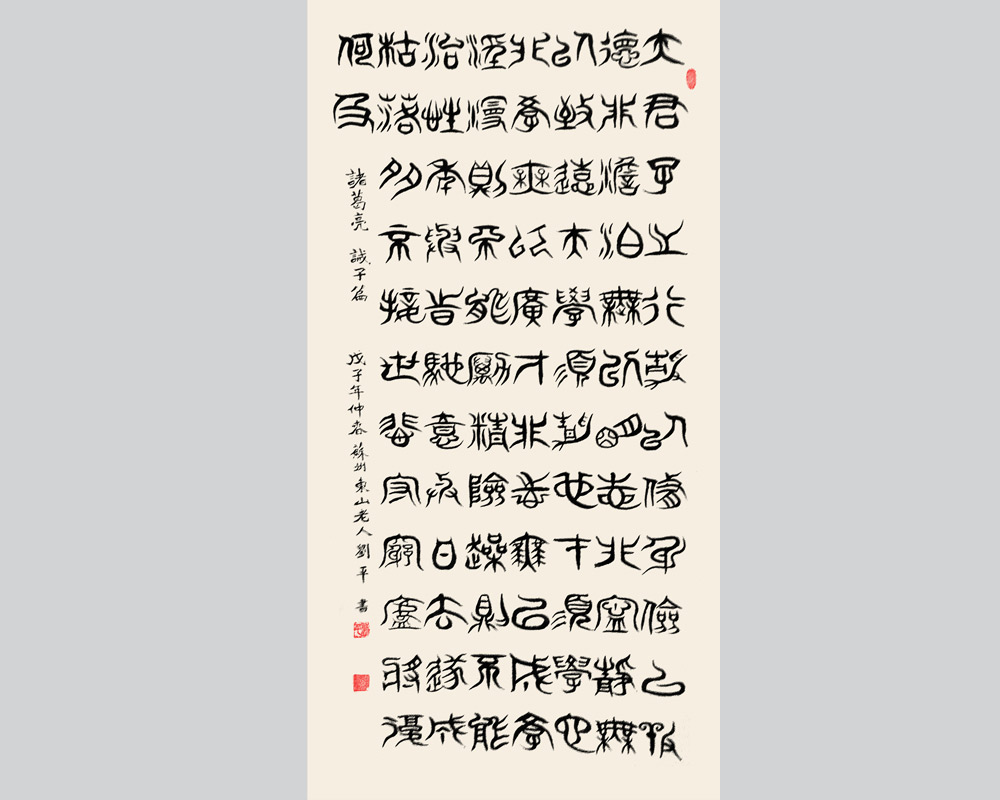 夫君子之行靜以修身儉以養
德非澹泊無以明志非寧靜無
以致遠夫學須靜也才須學也
非學無以廣才非志無以成學
淫漫則不能勵精險躁則不能
治性年與時馳意與日去遂成
枯落多不接世悲守窮廬將復
何及
諸葛亮 誡子篇 戊子年仲春蘇州東山老人劉平 書